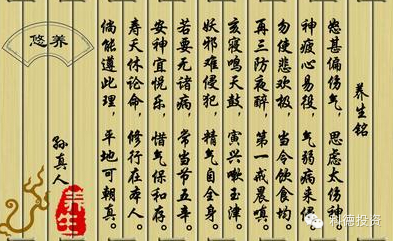 养生铭
怒甚偏伤气，思虑太伤神
神疲心易役，气弱病来侵
勿使悲欢极，当令饮食均。
再三防夜醉，第一戒晨嗔
亥寝鸣天鼓，寅兴漱玉津。
妖邪难侵犯，精气自全身。
若要无诸病，常当节五辛。
安神宜悦乐，惜气保和存。
寿夭休论命，修行在本人
倘能遵此理，平地可朝真
孙真人
悠养
养生
科德投资